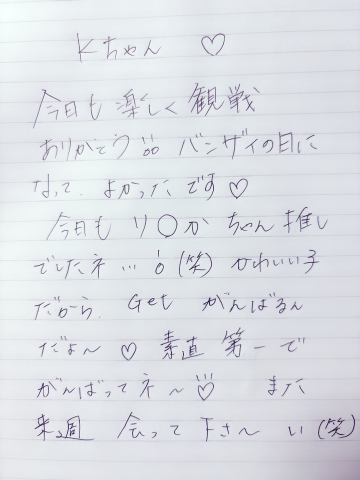 Kちゃん ♡
今日も楽しく観戦
ありがとう!! バンザイの日に
なって、よかったです♡
今日も リ○か ちゃん推し
でしたネ…!(笑) かわいい子
だから、Get がんばるん
だよ~ ♡ 素直 第一で
がんばってネ~♡ また
来週 会って下さ~い(笑)